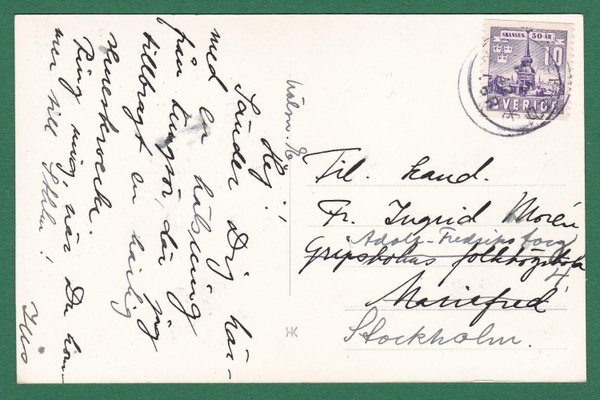 Hej!
Sänder Dig här-
med en hälsning
från Lungsö, där jag
tillbragt en härlig
semestervecka.
Ring mig när Du kom-
mer till Sthlm!
SKANSEN 50 ÅR
10
SVERIGE
Til. kand.
Fr. Ingrid Morén
Adolf-Fredriks torg
Gripsholms folkhögskola
4
Mariefred
Stockholm.